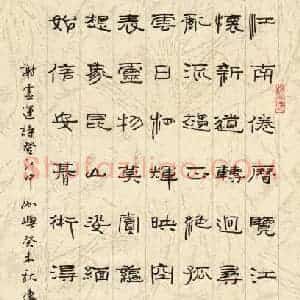 江南倦曆覽江
懷新道轉迥尋
亂流趨正絕孤
雲日相輝映空
表靈物莫賞蘊
想象昆山姿緬
始信安期術得
謝靈運詩登江中孤嶼癸未秋書